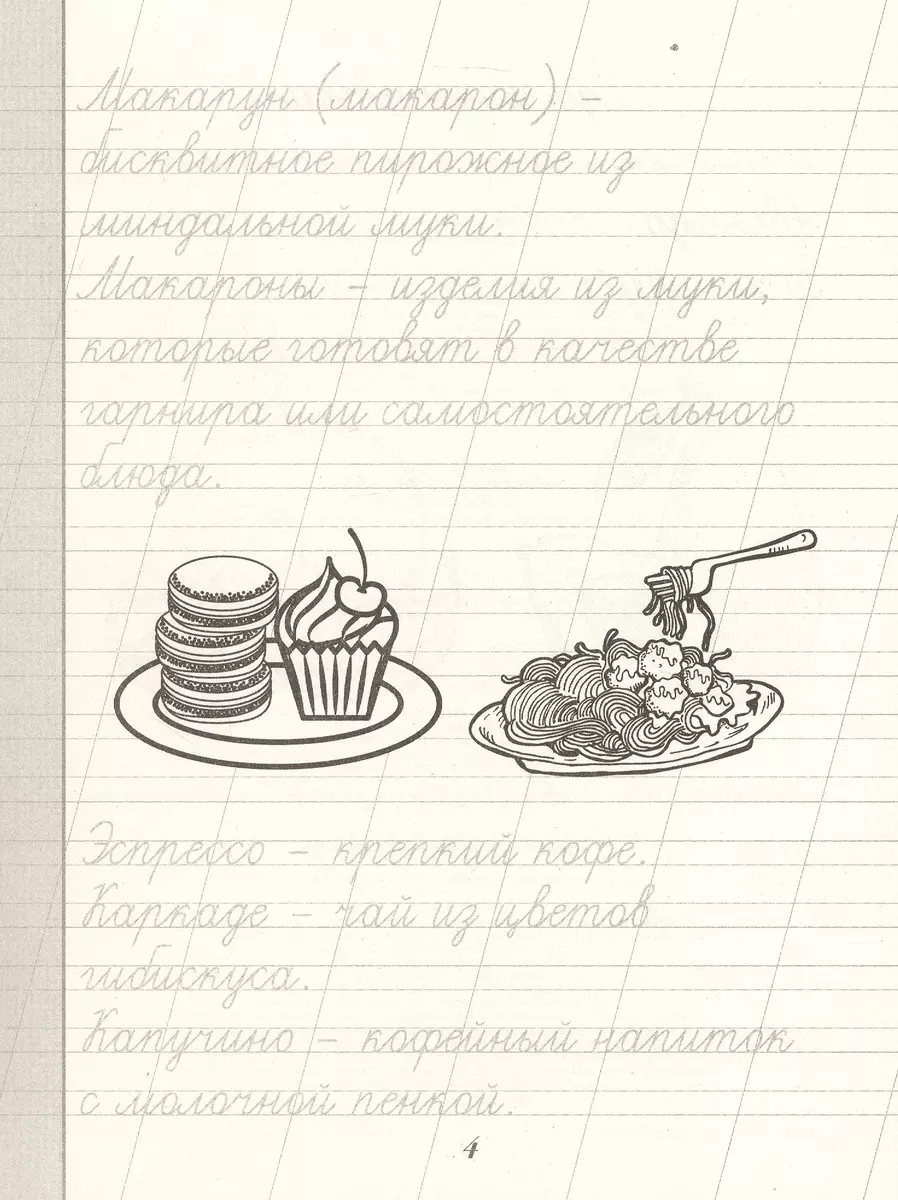 Макарун (макарон) –
бисквитное пирожное из
миндальной муки.
Макароны – изделия из муки,
которые готовят в качестве
гарнира или самостоятельного
блюда.
Эспрессо – крепкий кофе.
Каркаде – чай из цветов
гибискуса.
Капучино – кофейный напиток
с молочной пенкой.
4